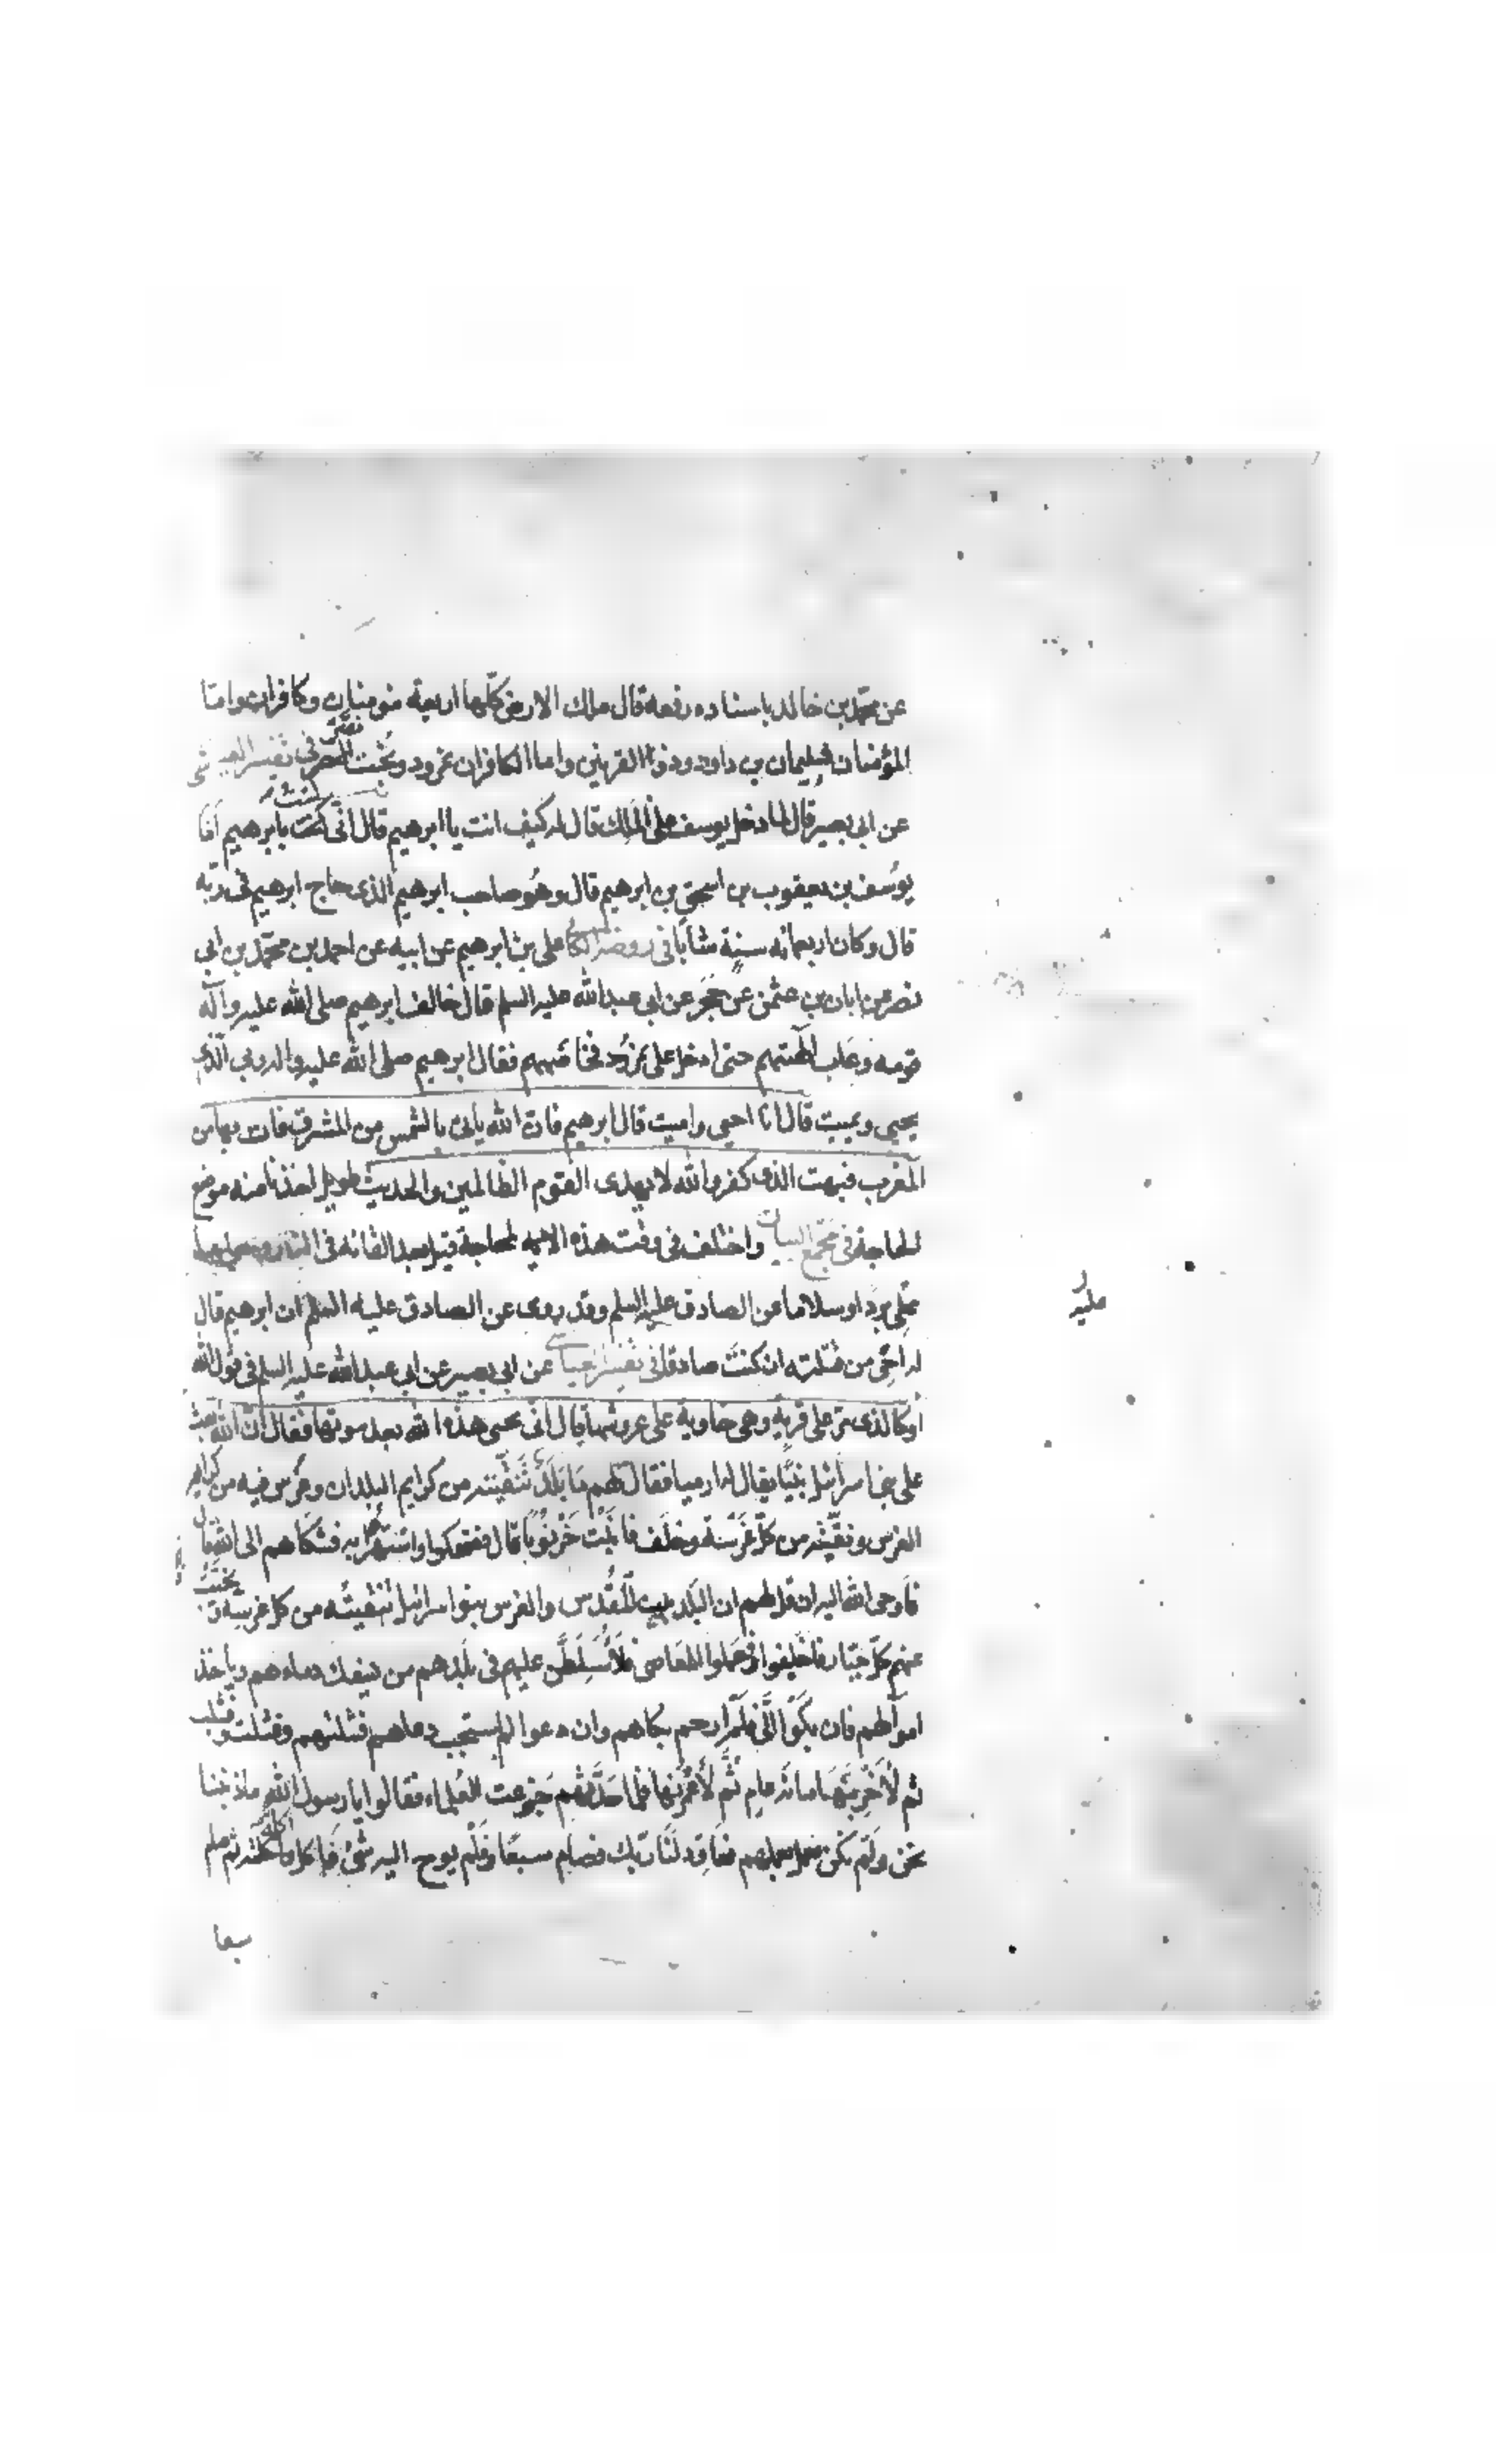 عن محمد بن خالد باسناده رفعه قال ملك الارض كلها اربعة مؤمنان وكافران واما
المؤمنان فسليمان بن داود وذو القرنين واما الكافران نمرود وبخت نصر في تفسير العياشى
عن ابى بصير قال لما دخل يوسف على الملك قال له كيف انت يا ابرهيم قال انى لست بابرهيم انا
يوسف بن يعقوب بن اسحق بن ابرهيم قال وهو صاحب ابرهيم الذى حاج ابرهيم فى ربه
قال وكان اربعمائه سنة شابا فى روضة الكافى على بن ابرهيم عن ابيه عن احمد بن محمد بن ابى
نصر عن ابان بن عثمن عن حجر عن ابى عبد الله عليه السلم قال خالف ابرهيم صلى الله عليه وآله
قومه وعاب الهتهم حتى ادخل على نمرود فخاصمهم فقال ابرهيم صلى الله عليه واله ربى الذى
يحيى ويميت قال انا احيى واميت قال ابرهيم فان الله ياتى بالشمس من المشرق فات بها من
المغرب فبهت الذى كفر والله لا يهدى القوم الظالمين والحديث طويل اخذنا منه موضع
الحاجة فى مجمع البيان واختلف فى وقت هذه المحاجة قيل بعد القائه فى النار وجعلها
عليه بردا وسلاما عن الصادق عليه السلم وقد روى عن الصادق عليه السلم ان ابرهيم قال
له احى من قتلته ان كنت صادقا فى تفسير العياشى عن ابى بصير عن ابى عبد الله عليه السلم فى قول الله
او كالذى مر على قرية وهى خاوية على عروشها قال انى يحيى هذه الله بعد موتها فقال ان الله بعث
على بنى اسرائيل نبيا يقال له ارميا فقال قل لهم ما بلد تنقيته من كرايم البلدان وغرس فيه من كرايم
الغرس ونقيته من كل غرسة فاخلف فانبت خرنوبا قال فضحكوا واستهزؤا به فشكاهم الى الله قال
فاوحى الله اليه ان قل لهم ان البلد بيت المقدس والغرس بنو اسرائيل تنقيته من كل غريبة ونحيت
عنهم كل جبار فاخلفوا فعملوا المعاصى فلاسلطن عليهم فى بلدهم من يسفك دماءهم وياخذ
اموالهم فان بكوا الى فلم ارحم بكاهم وان دعوا لم استجب دعاهم فشلتهم وفشلت
ثم لاخربنها مائة عام ثم لاعمرنها فلما حدثهم جزعت العلماء فقالوا يا رسول الله ما ذنبنا
نحن ولم نكن نعمل بعملهم فعاود لنا ربك فصام سبعا فلم يوح اليه شئ فاكل اكلة ثم صام
سبعا
عليه